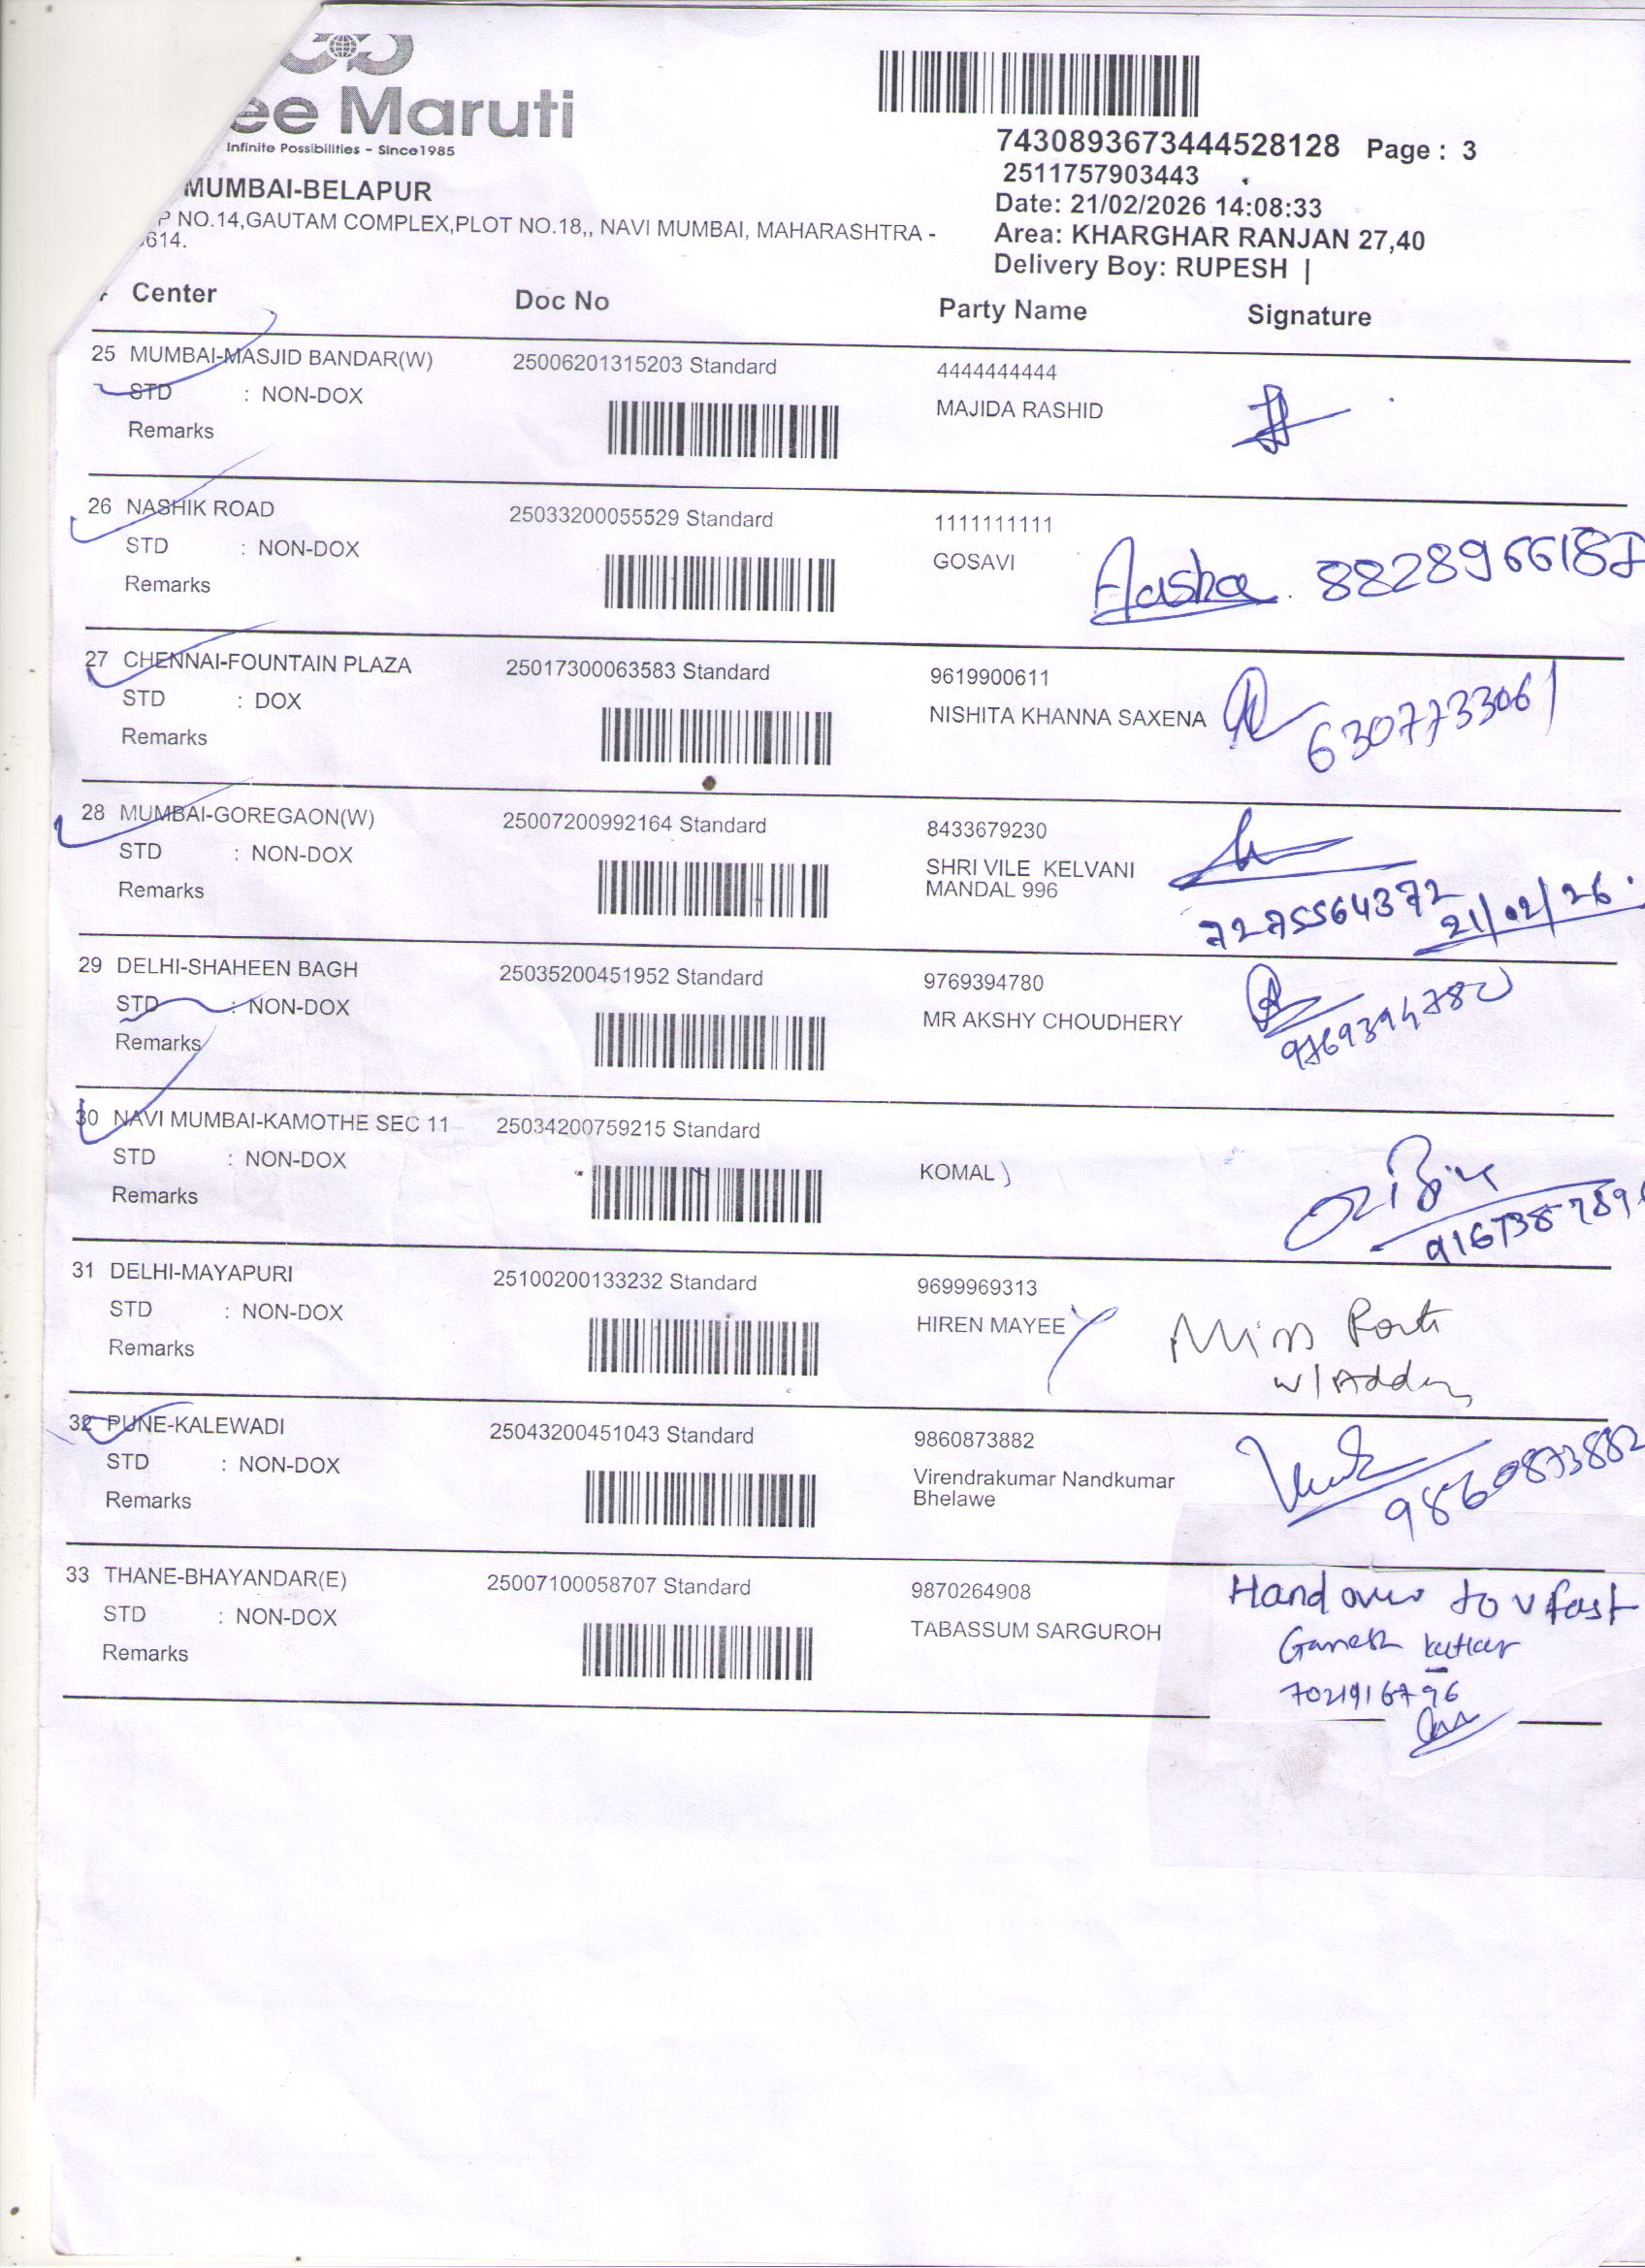 ee Maruti
Infinite Possibilities - Since1985
7430893673444528128 Page : 3
2511757903443
MUMBAI-BELAPUR
Date: 21/02/2026 14:08:33
P NO.14,GAUTAM COMPLEX,PLOT NO.18,, NAVI MUMBAI, MAHARASHTRA -
614.
Area: KHARGHAR RANJAN 27,40
Delivery Boy: RUPESH |
Center Doc No Party Name Signature
25 MUMBAI-MASJID BANDAR(W) 25006201315203 Standard 4444444444
STD : NON-DOX MAJIDA RASHID
Remarks
26 NASHIK ROAD 25033200055529 Standard 1111111111
STD : NON-DOX GOSAVI Aasha 8828966187
Remarks
27 CHENNAI-FOUNTAIN PLAZA 25017300063583 Standard 9619900611
STD : DOX NISHITA KHANNA SAXENA 6307733061
Remarks
28 MUMBAI-GOREGAON(W) 25007200992164 Standard 8433679230
STD : NON-DOX SHRI VILE KELVANI
Remarks MANDAL 996
7275564372 21/02/26.
29 DELHI-SHAHEEN BAGH 25035200451952 Standard 9769394780
STD : NON-DOX MR AKSHY CHOUDHERY 9769394780
Remarks
30 NAVI MUMBAI-KAMOTHE SEC 11 25034200759215 Standard
STD : NON-DOX KOMAL
Remarks
31 DELHI-MAYAPURI 25100200133232 Standard 9699969313
STD : NON-DOX HIREN MAYEE Miss
Remarks
32 PUNE-KALEWADI 25043200451043 Standard 9860873882
STD : NON-DOX Virendrakumar Nandkumar 9860873882
Remarks Bhelawe
33 THANE-BHAYANDAR(E) 25007100058707 Standard 9870264908 Hand over to v fast
STD : NON-DOX TABASSUM SARGUROH Ganesh
Remarks 7021916796